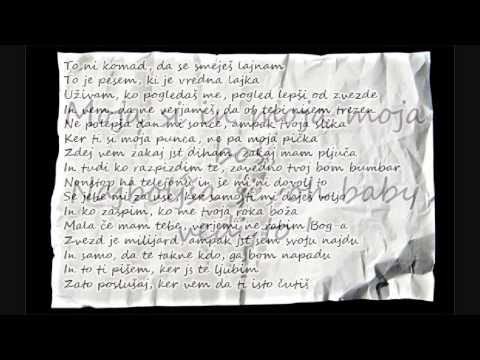 To ni komad, da se smeješ lajnam
To je pesem, ki je vredna lajka
Uživam, ko pogledaš me, pogled lepši od zvezde
In vem, da ne verjameš, da ob tebi nisem trezen
Ne potepša dan me sonce, ampak tvoja slika
Ker ti si moja punca, ne pa moja pička
Zdej vem zakaj jst diham, zakaj mam pljuča
In tudi ko razpizdim te, zavedno tvoj bom bumbar
Nonstop na telefonu in je mi ni dovolj to
Se tebe mi zaluše, ker samo ti mi daješ boljo
In ko zaspim, ko me tvoja roka boža
Mala če mam tebe, verjemi ne rabim Bog-a
Zvezd je milijard, ampak jst sem svoju najdu
In samo, da te takne kdo, ga bom napadu
In to ti pišem, ker js te ljubim
Zato poslušaj, ker vem da ti isto čutiš
moja
baby